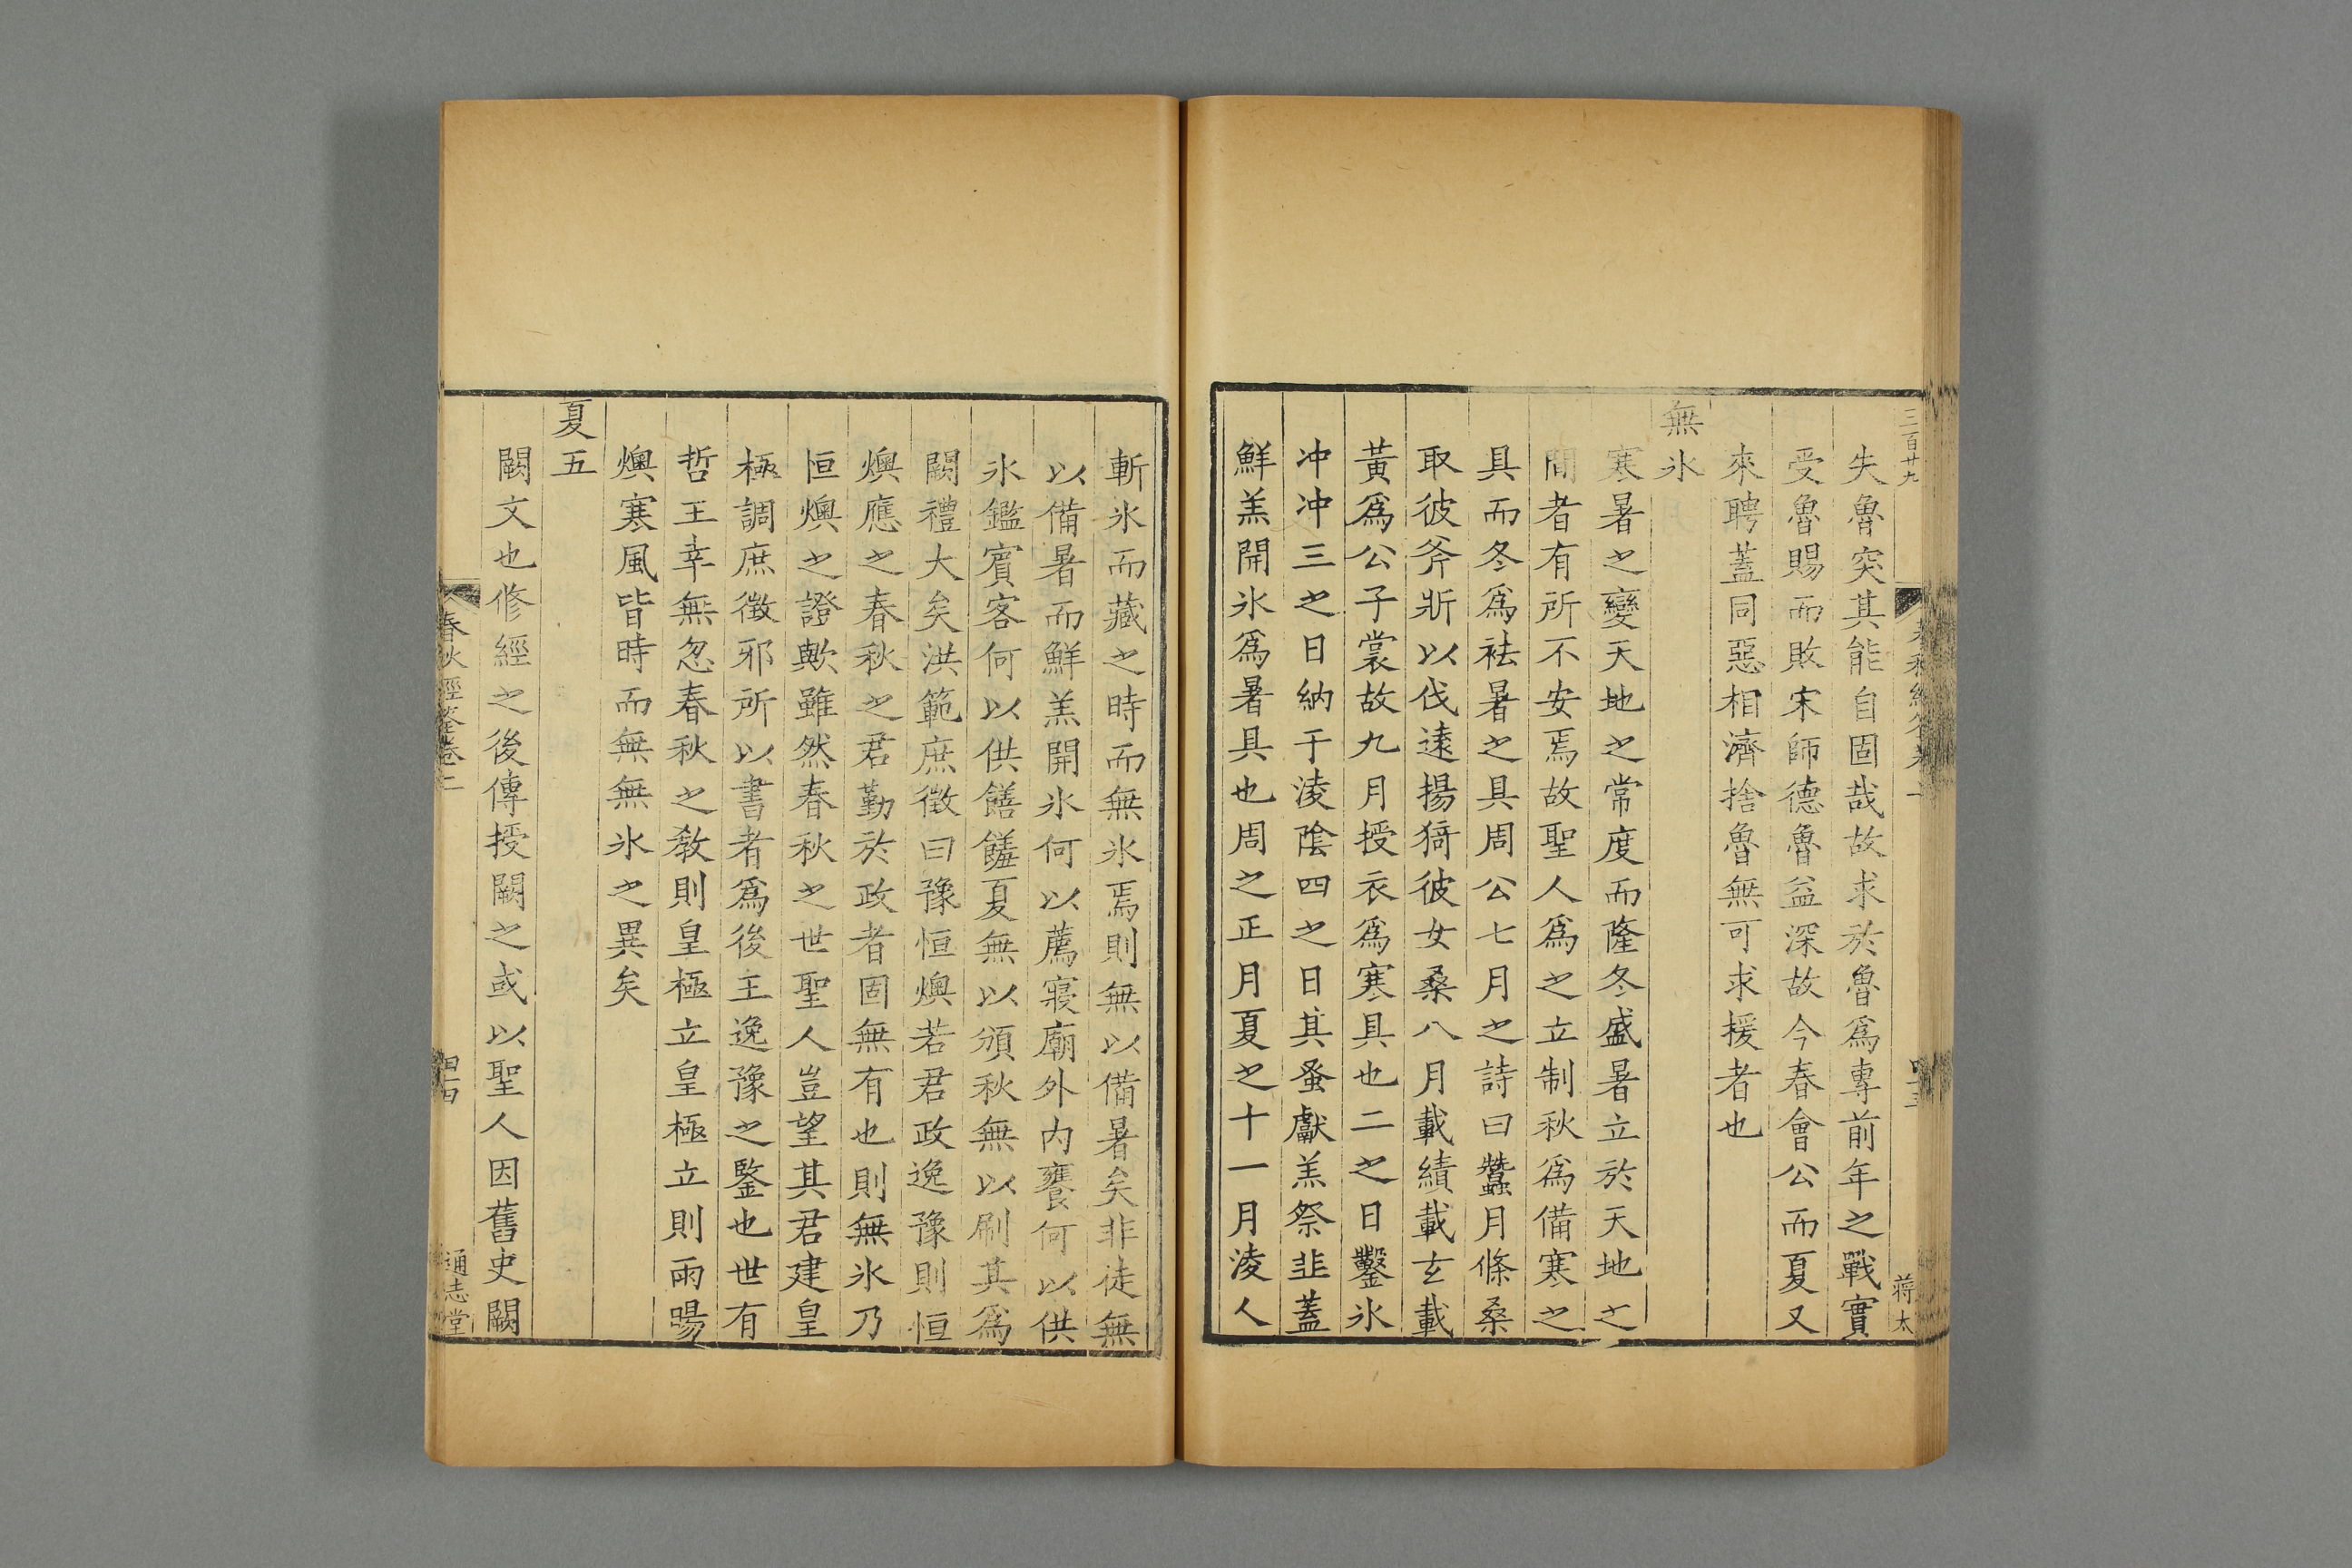 三百廿九
蔣太
失魯突其能自固哉故求於魯爲專前年之戰實
受魯賜而敗宋師德魯益深故今春會公而夏又
來聘蓋同惡相濟捨魯無可求援者也
無氷
寒暑之變天地之常度而隆冬盛暑立於天地之
間者有所不安焉故聖人爲之立制秋爲備寒之
具而冬爲祛暑之具周公七月之詩曰蠶月條桑
取彼斧斨以伐遠揚猗彼女桑八月載績載玄載
黃爲公子裳故九月授衣爲寒具也二之日鑿氷
冲冲三之日納于淩陰四之日其蚤獻羔祭韭蓋
鮮羔開氷爲暑具也周之正月夏之十一月淩人
斬氷而藏之時而無氷焉則無以備暑矣非徒無
以備暑而鮮羔開氷何以薦寢廟外内饔何以供
氷鑑賓客何以供饍饈夏無以頒秋無以刷其爲
闕禮大矣洪範庶徴曰豫恒燠若君政逸豫則恒
燠應之春秋之君勤於政者固無有也則無氷乃
恒燠之證歟雖然春秋之世聖人豈望其君建皇
極調庶徴邪所以書者爲後王逸豫之鑒也世有
哲王幸無忽春秋之敎則皇極立皇極立則雨暘
燠寒風皆時而無無氷之異矣
夏五
闕文也修經之後傳授闕之或以聖人因舊史闕
春秋經筌卷二
四十四
通志堂